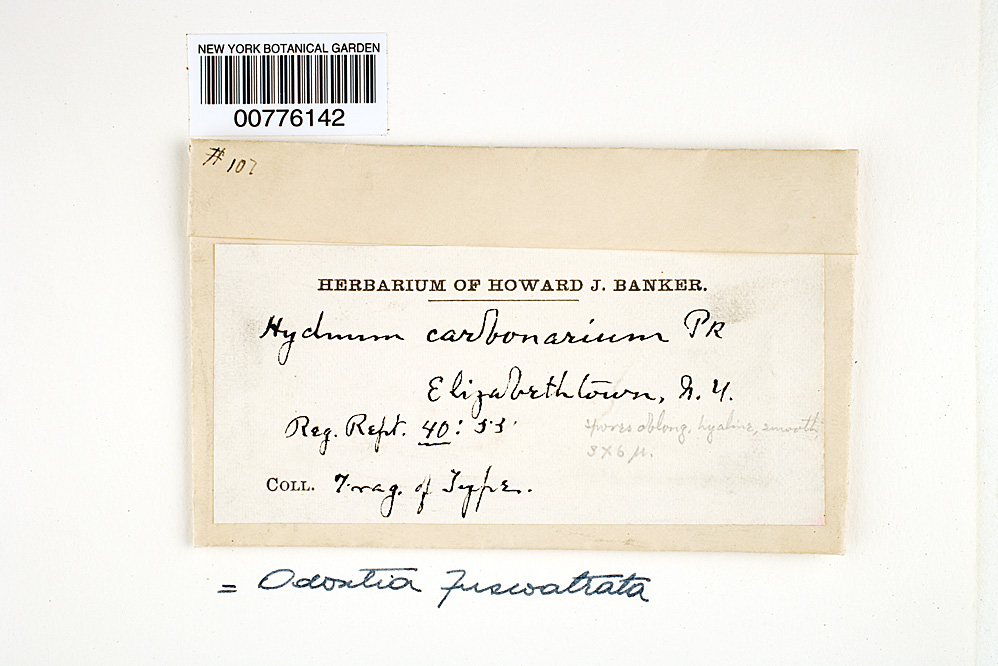 NEW YORK BOTANICAL GARDEN
00776142
# 107
HERBARIUM OF HOWARD J. BANKER.
Hydnum carbonarium Pk
Elizabethtown, N. Y.
Reg. Rept. 40: 55
spores oblong, hyaline, smooth,
3 X 6 µ.
COLL. Frag. of Type.
= Odontia fuscoatrata